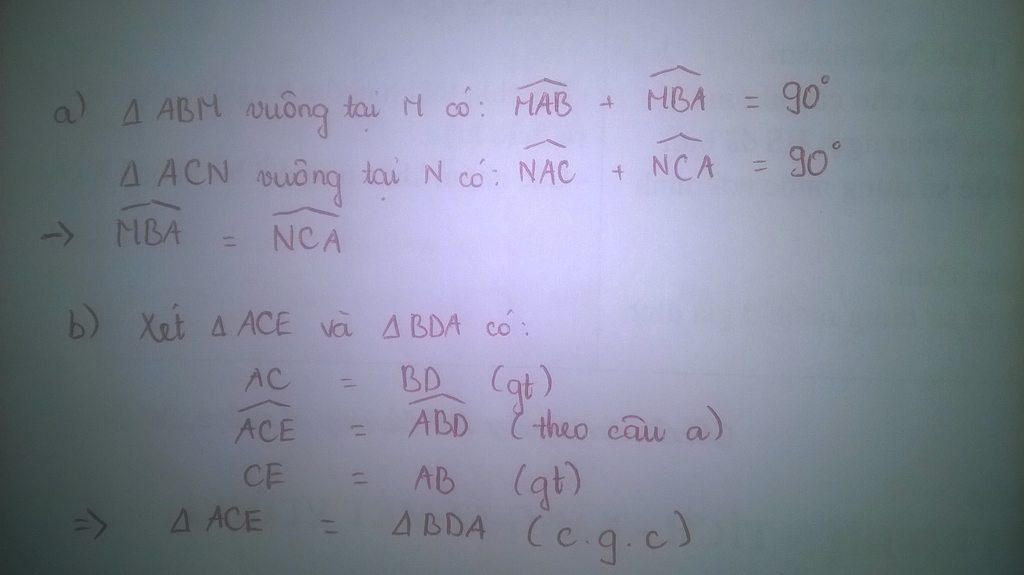 a) Δ ABM vuông tại M có: \widehat{MAB} + \widehat{MBA} = 90°
Δ ACN vuông tại N có: \widehat{NAC} + \widehat{NCA} = 90°
→ \widehat{MBA} = \widehat{NCA}
b) Xét Δ ACE và Δ BDA có:
AC = BD (gt)
\widehat{ACE} = \widehat{ABD} (theo câu a)
CE = AB (gt)
=> Δ ACE = Δ BDA (c.g.c)